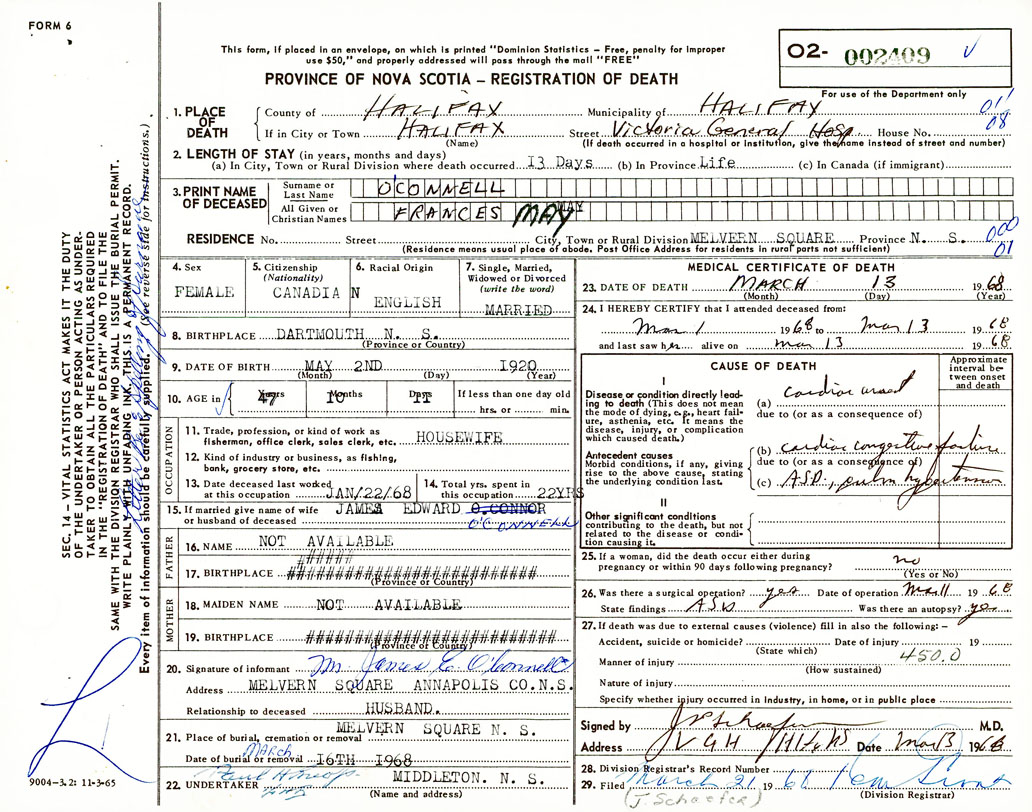 FORM 6
This form, if placed in an envelope, on which is printed "Dominion Statistics – Free, penalty for improper
use $50," and properly addressed will pass through the mail "FREE"
O2- 002409
PROVINCE OF NOVA SCOTIA – REGISTRATION OF DEATH
For use of the Department only
1. PLACE OF DEATH
County of HALIFAX Municipality of HALIFAX 011
If in City or Town HALIFAX Street Victoria General Hosp House No. 08
(Name) (If death occurred in a hospital or institution, give the name instead of street and number)
2. LENGTH OF STAY (in years, months and days)
(a) In City, Town or Rural Division where death occurred 13 Days (b) In Province Life (c) In Canada (if immigrant)
3. PRINT NAME OF DECEASED
Surname or Last Name O'CONNELL
All Given or Christian Names FRANCES MAY
RESIDENCE No. Street City, Town or Rural Division MELVERN SQUARE Province N. S. 000
(Residence means usual place of abode. Post Office Address for residents in rural parts not sufficient) 01
4. Sex FEMALE
5. Citizenship (Nationality) CANADIAN
6. Racial Origin ENGLISH
7. Single, Married, Widowed or Divorced (write the word) MARRIED
8. BIRTHPLACE DARTMOUTH N. S.
(Province or Country)
9. DATE OF BIRTH MAY 2ND 1920
(Month) (Day) (Year)
10. AGE in 47 Years 10 Months Days 11 If less than one day old
hrs. or min.
OCCUPATION
11. Trade, profession or kind of work as
fisherman, office clerk, sales clerk, etc. HOUSEWIFE
12. Kind of industry or business, as fishing,
bank, grocery store, etc.
13. Date deceased last worked at this occupation JAN/22/68
14. Total yrs. spent in this occupation 22YRS
15. If married give name of wife or husband of deceased JAMES EDWARD O.CONNOR
O'CONNELL
FATHER
16. NAME NOT AVAILABLE
######
17. BIRTHPLACE ##########################
(Province or Country)
MOTHER
18. MAIDEN NAME NOT AVAILABLE
19. BIRTHPLACE ##########################
(Province or Country)
20. Signature of informant Mr James E. O'Connell
Address MELVERN SQUARE ANNAPOLIS CO.N.S.
Relationship to deceased HUSBAND.
MELVERN SQUARE N. S.
21. Place of burial, cremation or removal
Date of burial or removal MARCH 16TH 1968
22. UNDERTAKER MIDDLETON. N. S.
(Name and address)
MEDICAL CERTIFICATE OF DEATH
23. DATE OF DEATH MARCH 13 1968
(Month) (Day) (Year)
24. I HEREBY CERTIFY that I attended deceased from:
Mar 1 1968 to Mar 13 1968
and last saw her alive on mar 13 1968
CAUSE OF DEATH
Approximate interval between onset and death
I
Disease or condition directly leading to death (This does not mean the mode of dying, e.g., heart failure, asthenia, etc. It means the disease, injury, or complication which caused death.)
(a) cardiac arrest
due to (or as a consequence of)
Antecedent causes
Morbid conditions, if any, giving rise to the above cause, stating the underlying condition last.
(b) cardiac congestive failure
due to (or as a consequence of)
(c) ASD, pulm hypertension
II
Other significant conditions
contributing to the death, but not related to the disease or condition causing it.
25. If a woman, did the death occur either during
pregnancy or within 90 days following pregnancy? no
(Yes or No)
26. Was there a surgical operation? yes Date of operation Mar 11 1968
State findings ASD Was there an autopsy? yes
27. If death was due to external causes (violence) fill in also the following: –
Accident, suicide or homicide? Date of injury 19
(State which) 450.0
Manner of injury
(How sustained)
Nature of injury
Specify whether injury occurred in industry, in home, or in public place
Signed by JP Schaefer M.D.
Address V G H Hfx NS Date Mar 13 1968
28. Division Registrar's Record Number
29. Filed March 21 1968
(J. Schaefer) (Division Registrar)
SEC. 14 – VITAL STATISTICS ACT MAKES IT THE DUTY
OF THE UNDERTAKER OR PERSON ACTING AS UNDER-
TAKER TO OBTAIN ALL THE PARTICULARS REQUIRED
IN THE "REGISTRATION OF DEATH" AND TO FILE THE
SAME WITH THE DIVISION REGISTRAR WHO SHALL ISSUE THE BURIAL PERMIT.
WRITE PLAINLY WITH UNFADING INK. THIS IS A PERMANENT RECORD.
Every item of information should be carefully supplied. (See reverse side for instructions.)
9004-3.2: 11-3-65